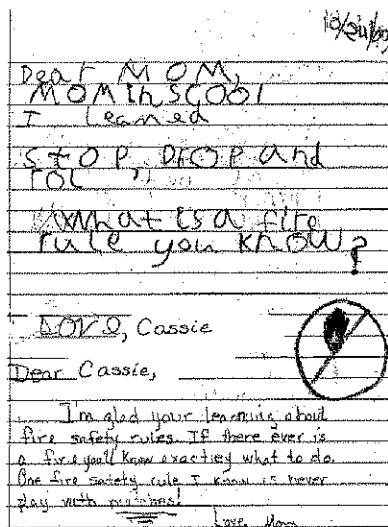 Dear MOM,
MOM in SCOOl
I learned
StOP, DrOP and
rOL
What is a fire
rule you know?
LOVE, Cassie
Dear Cassie,
I'm glad your learning about
fire safety rules. If there ever is
a fire you'll know exactley what to do.
One fire safety rule I know is never
play with matches!
Love, Mom